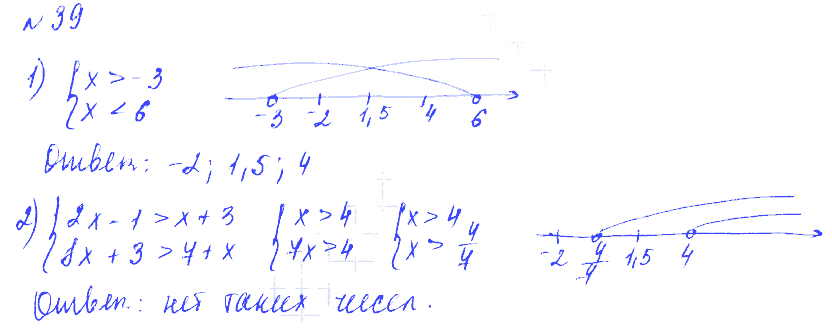 № 39
1) { x > -3
{ x < 6
-3 -2 1,5 4 6
Ответ: -2; 1,5; 4
2) { 2x - 1 > x + 3 { x > 4 { x > 4
{ 8x + 3 > 7 + x { 7x > 4 { x > 4/7
-2 4/7 1,5 4
Ответ: нет таких чисел.